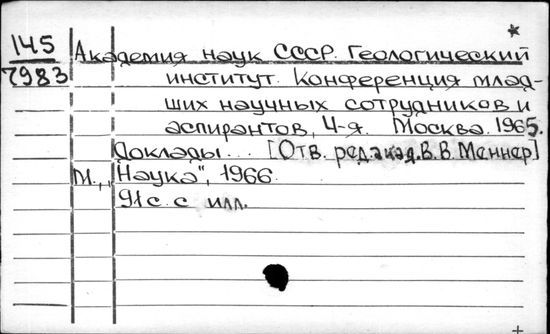 145
7983
Академия наук СССР. Геологический
институт. Конференция млад-
ших научных сотрудников и
аспирантов, 4-я. Москва. 1965.
Доклады... [Отв. ред. акад. В. В. Меннер]
М., "Наука", 1966.
91 с. с илл.